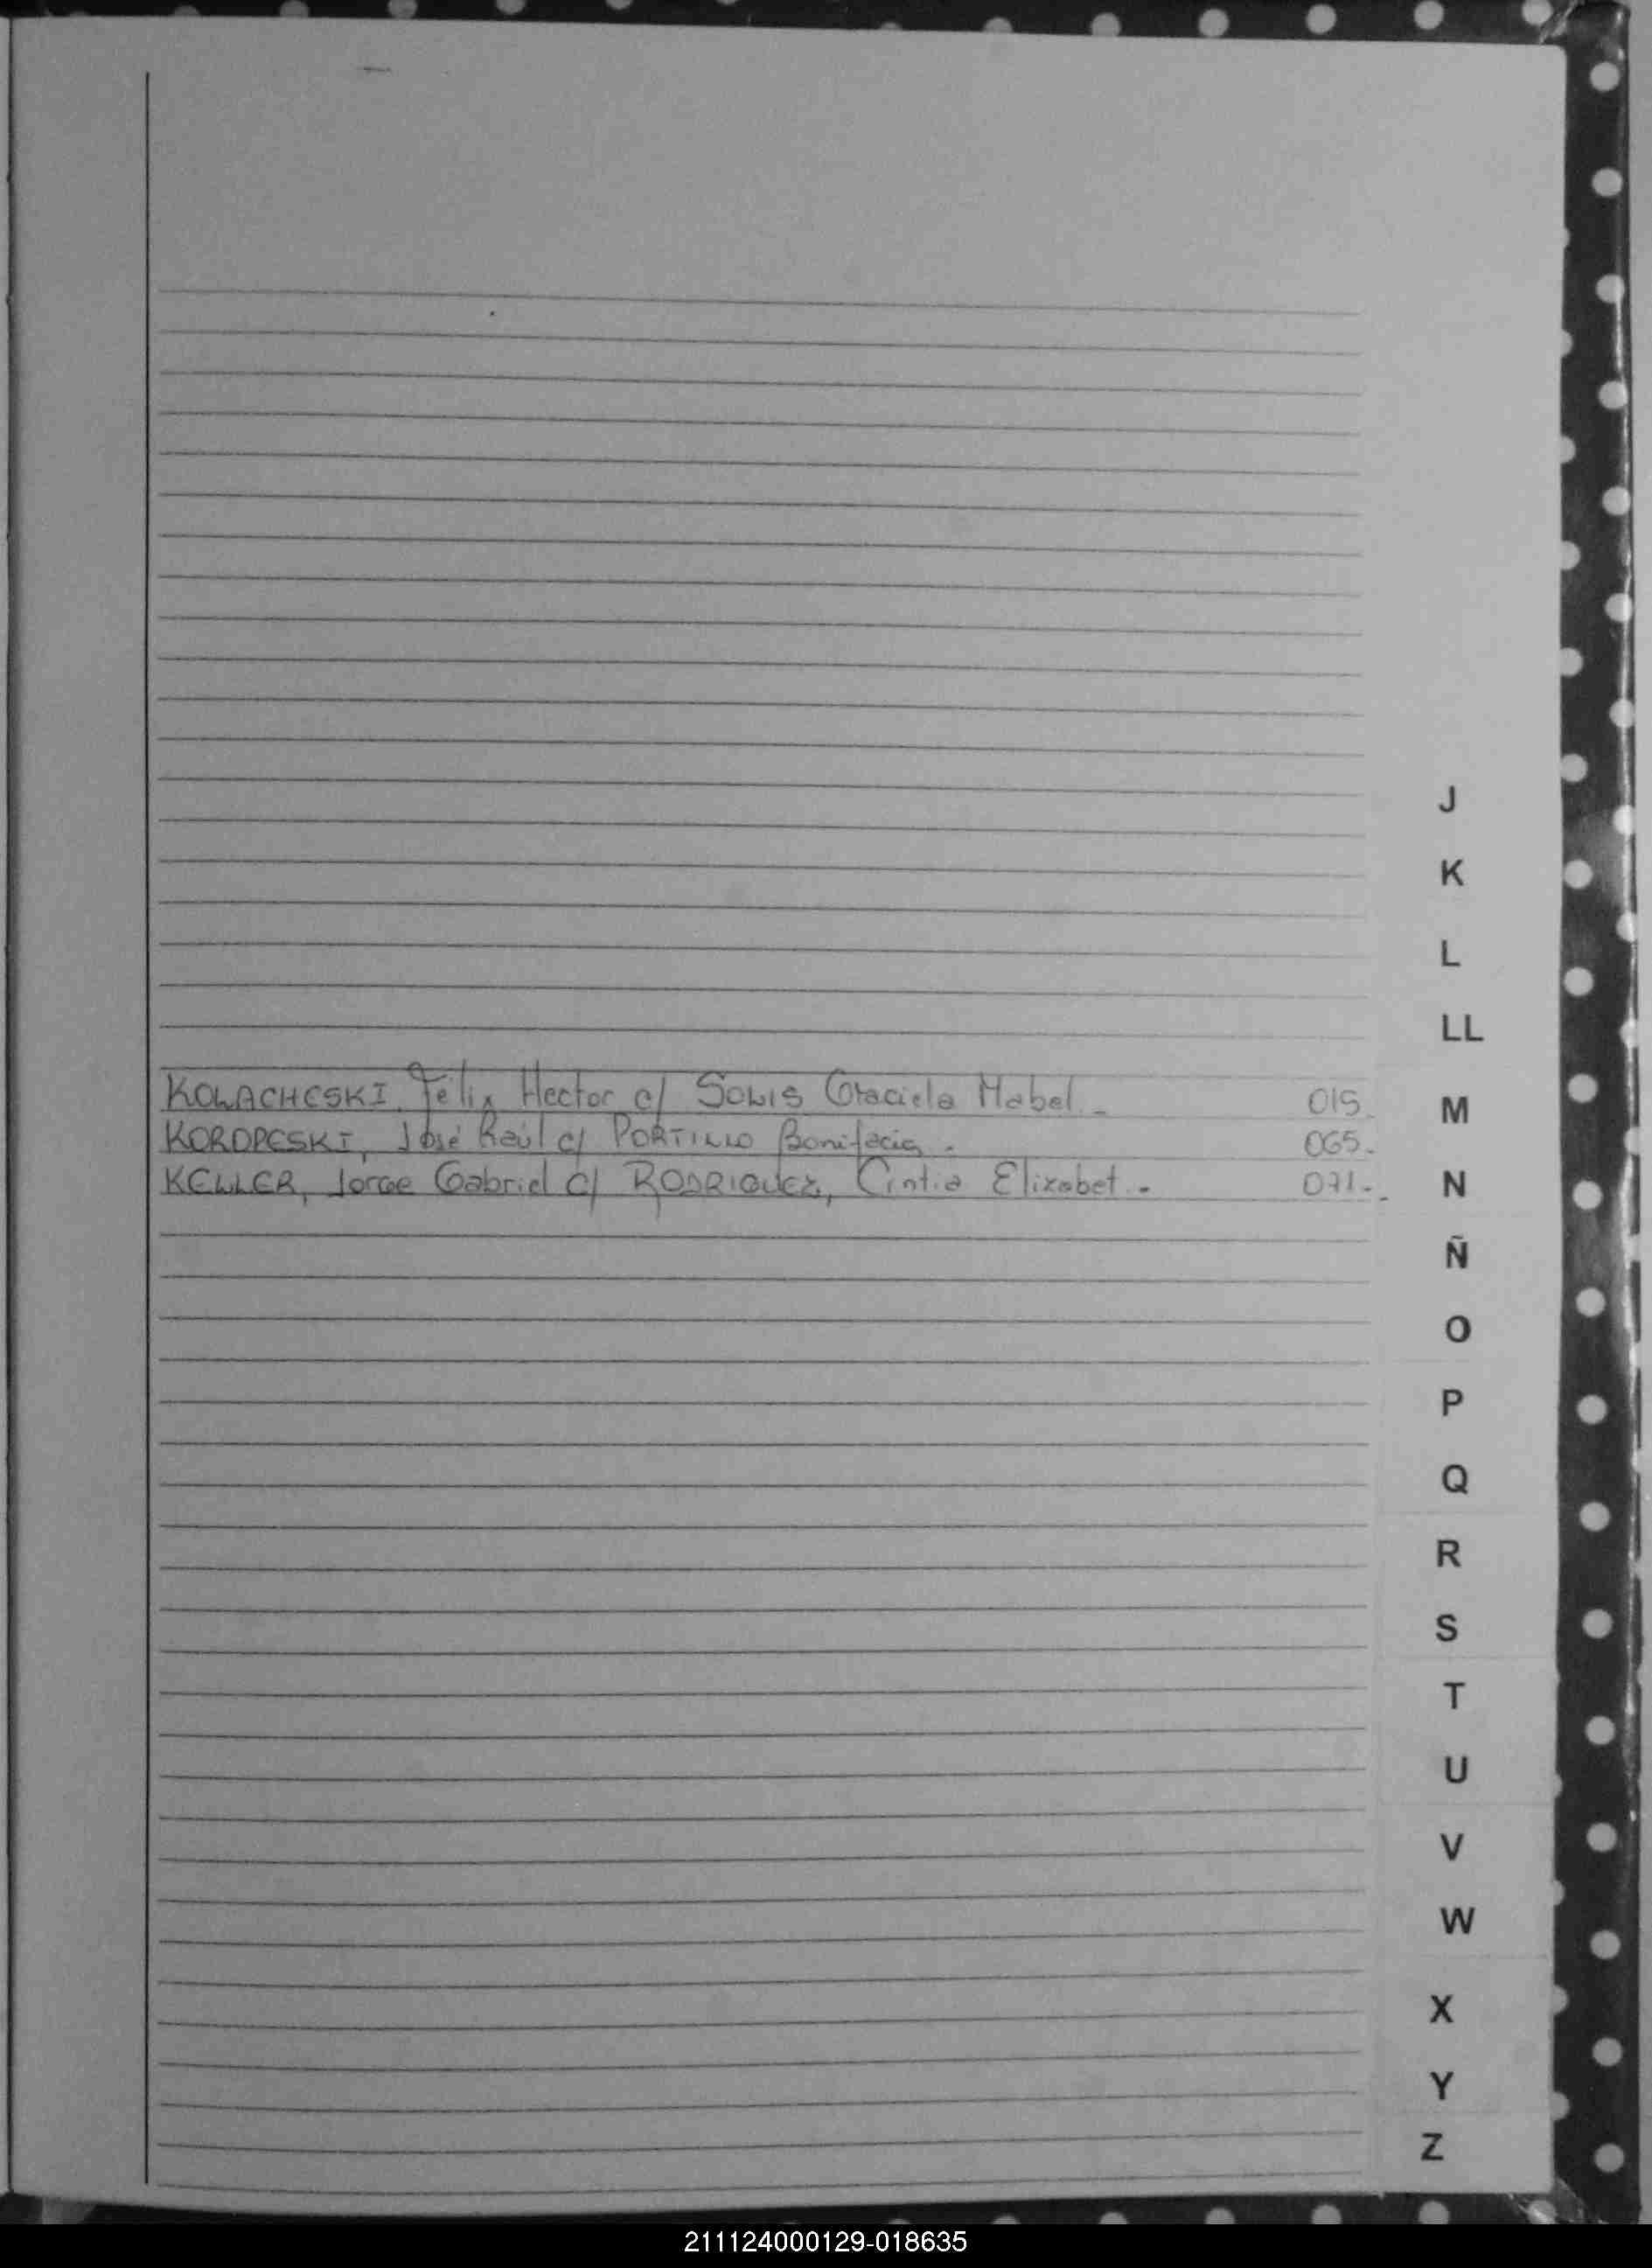 J
K
L
LL
KOLACHESKI, Félix Hector c/ SOLIS Graciela Mabel.- 015.
KOROPESKI, José Raúl c/ PORTILLO Bonifacia.- 065.-
KELLER, Jorge Gabriel c/ RODRIGUEZ, Cintia Elizabet.- 071.-
M
N
Ñ
O
P
Q
R
S
T
U
V
W
X
Y
Z
211124000129-018635